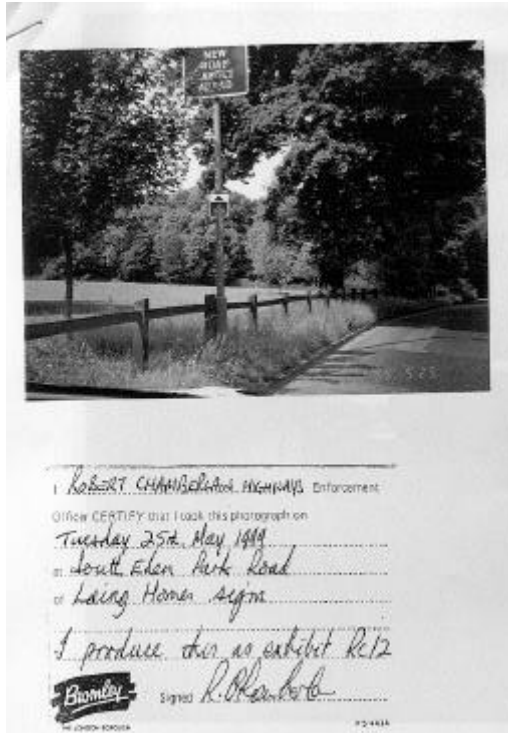 NEW
ROAD
AHEAD
5.25
I ROBERT CHAMBERLAIN HIGHWAYS Enforcement
Officer CERTIFY that I took this photograph on
Tuesday 25th May 1999
at South Eden Park Road
of Laing Homes sign
I produce this as exhibit Rc12
Bromley
Signed R. Chamberlain
THE LONDON BOROUGH